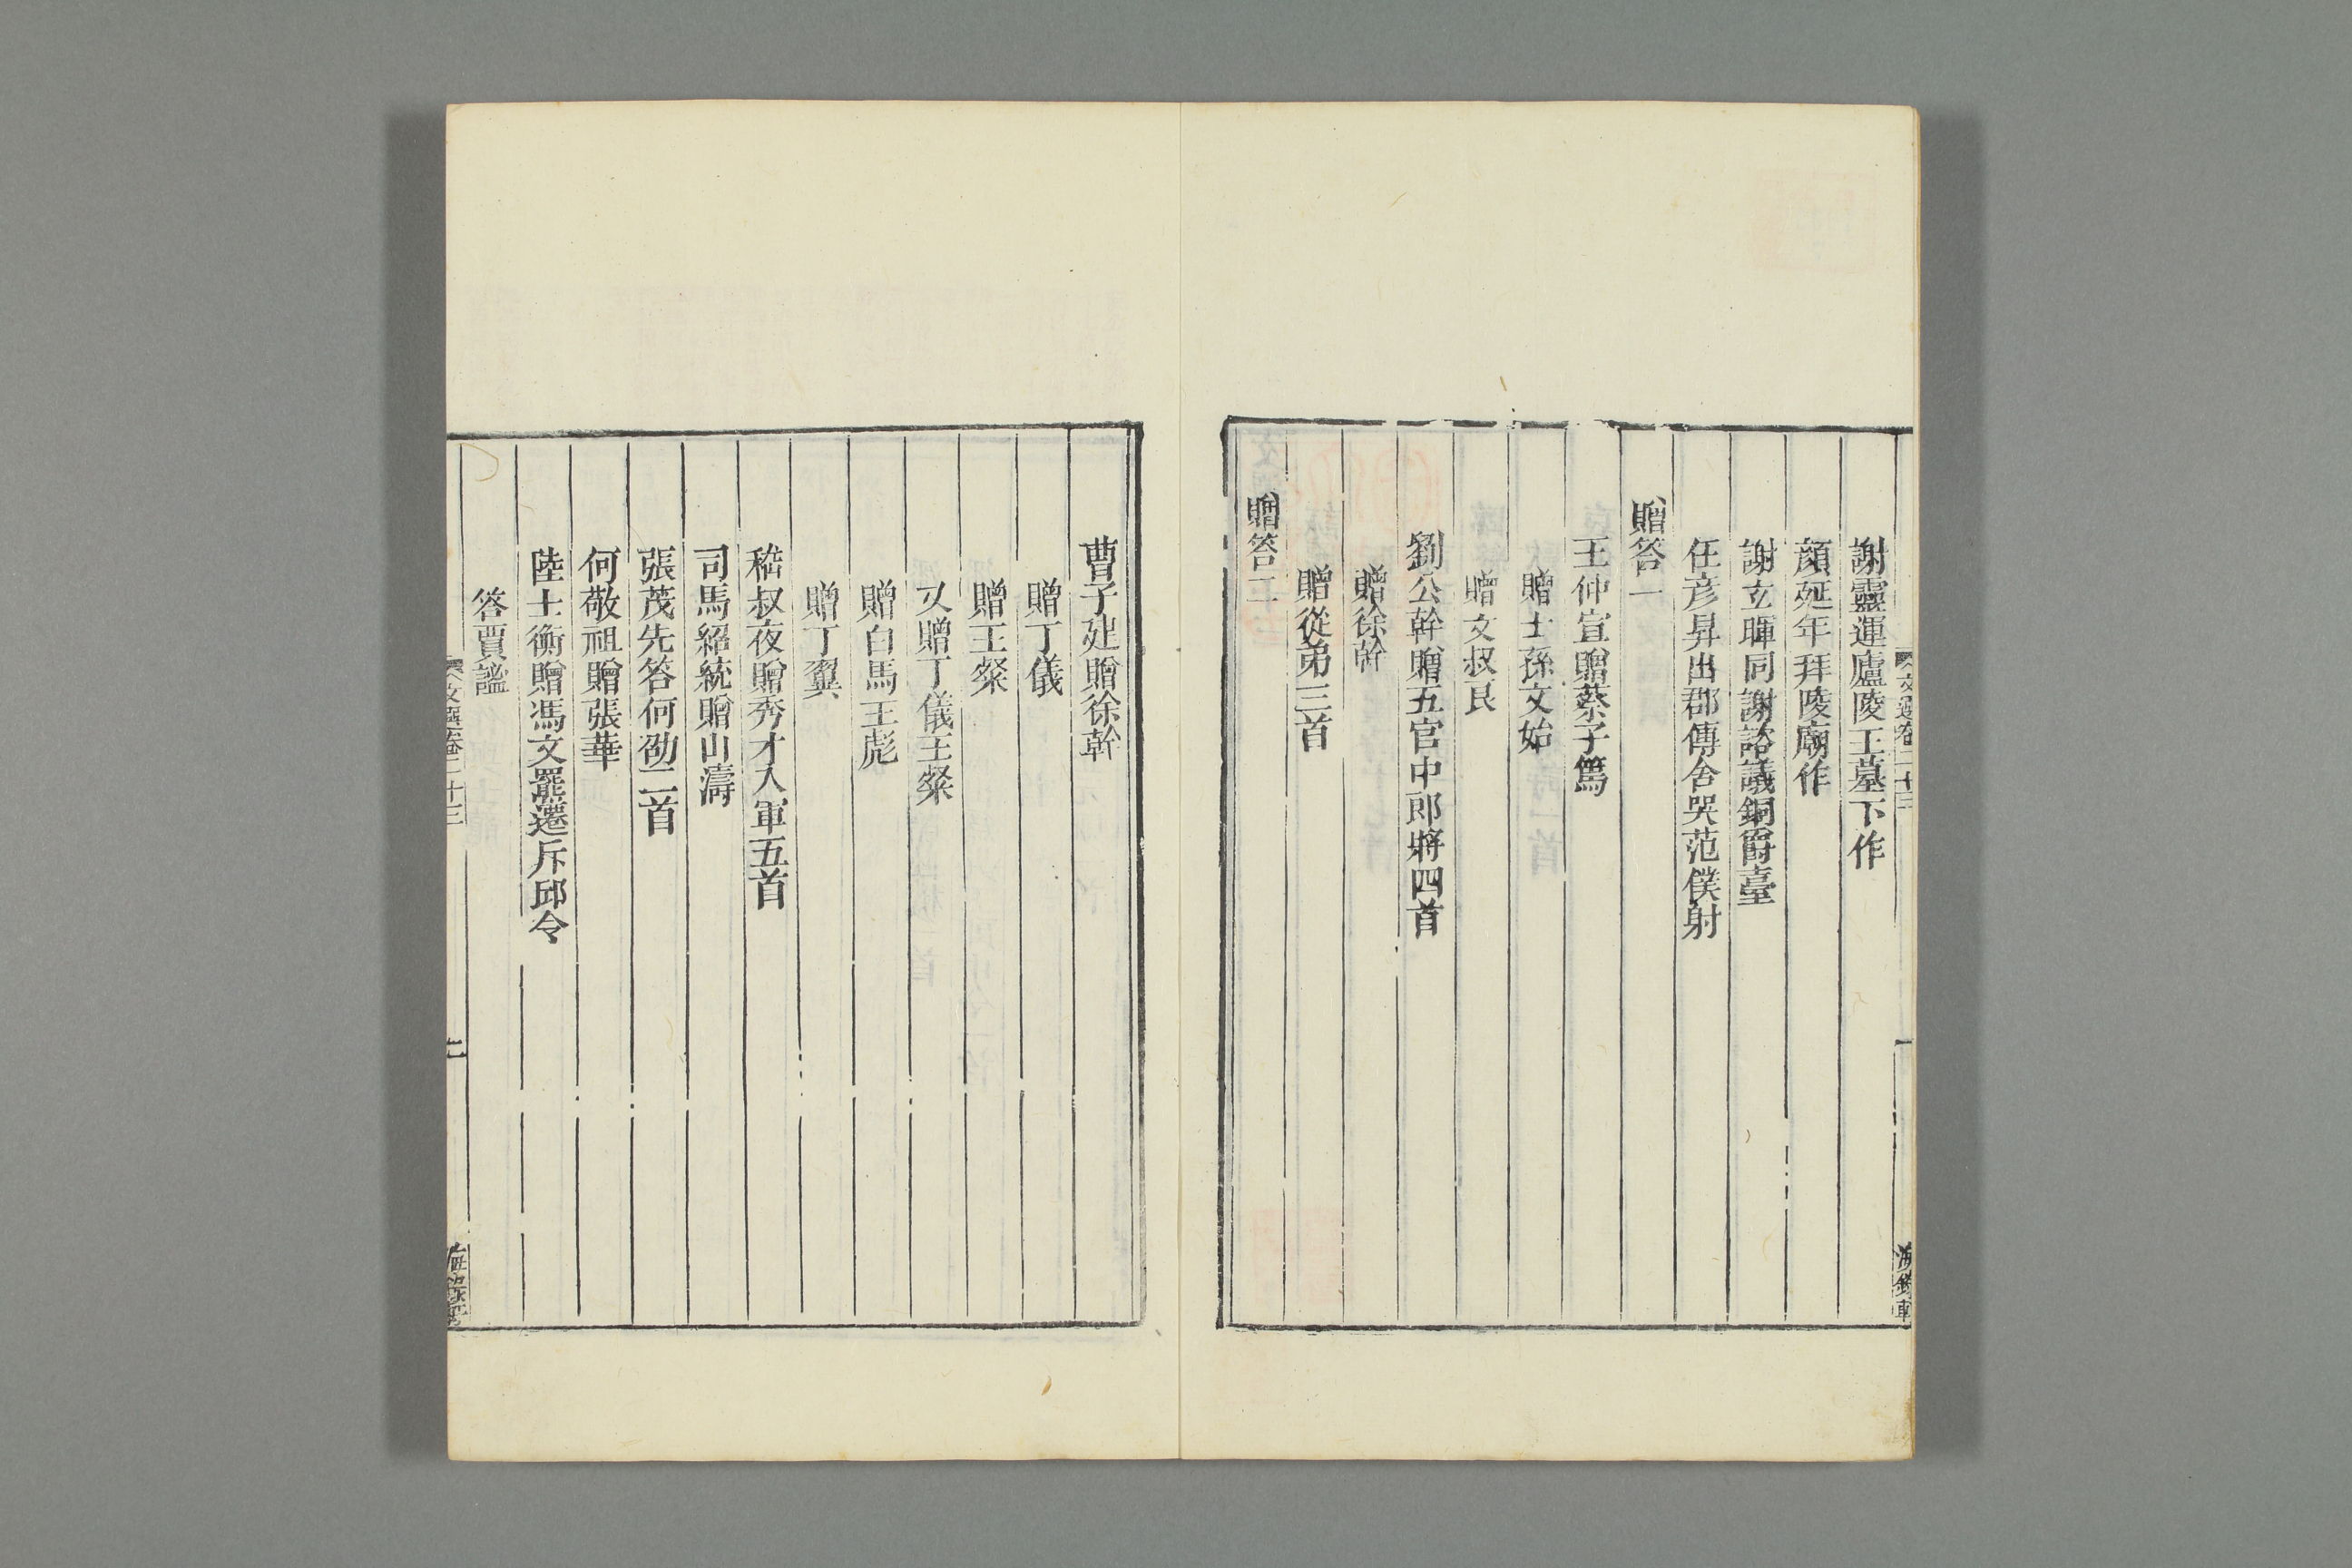 謝靈運廬陵王墓下作
顔延年拜陵廟作
謝玄暉同謝諮議銅爵臺
任彦昇出郡傳舍哭范僕射
贈答一
王仲宣贈蔡子篤
贈士孫文始
贈文叔良
劉公幹贈五官中郎將四首
贈徐幹
贈從弟三首
贈答二
曹子建贈徐幹
贈丁儀
贈王粲
又贈丁儀王粲
贈白馬王彪
贈丁翼
嵇叔夜贈秀才入軍五首
司馬紹統贈山濤
張茂先答何劭二首
何敬祖贈張華
陸士衡贈馮文羆遷斥邱令
答賈謐
文選卷二十三
二
海錄軒